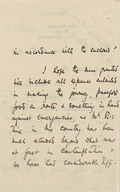 in accordance with the enclosed?
I hope the sum granted
will include all expenses entailed
in making the journey, passport
foods en route & something in hand
against emergencies as Mr
time in his country has been
much studied before that one
at first in
he has had considerable